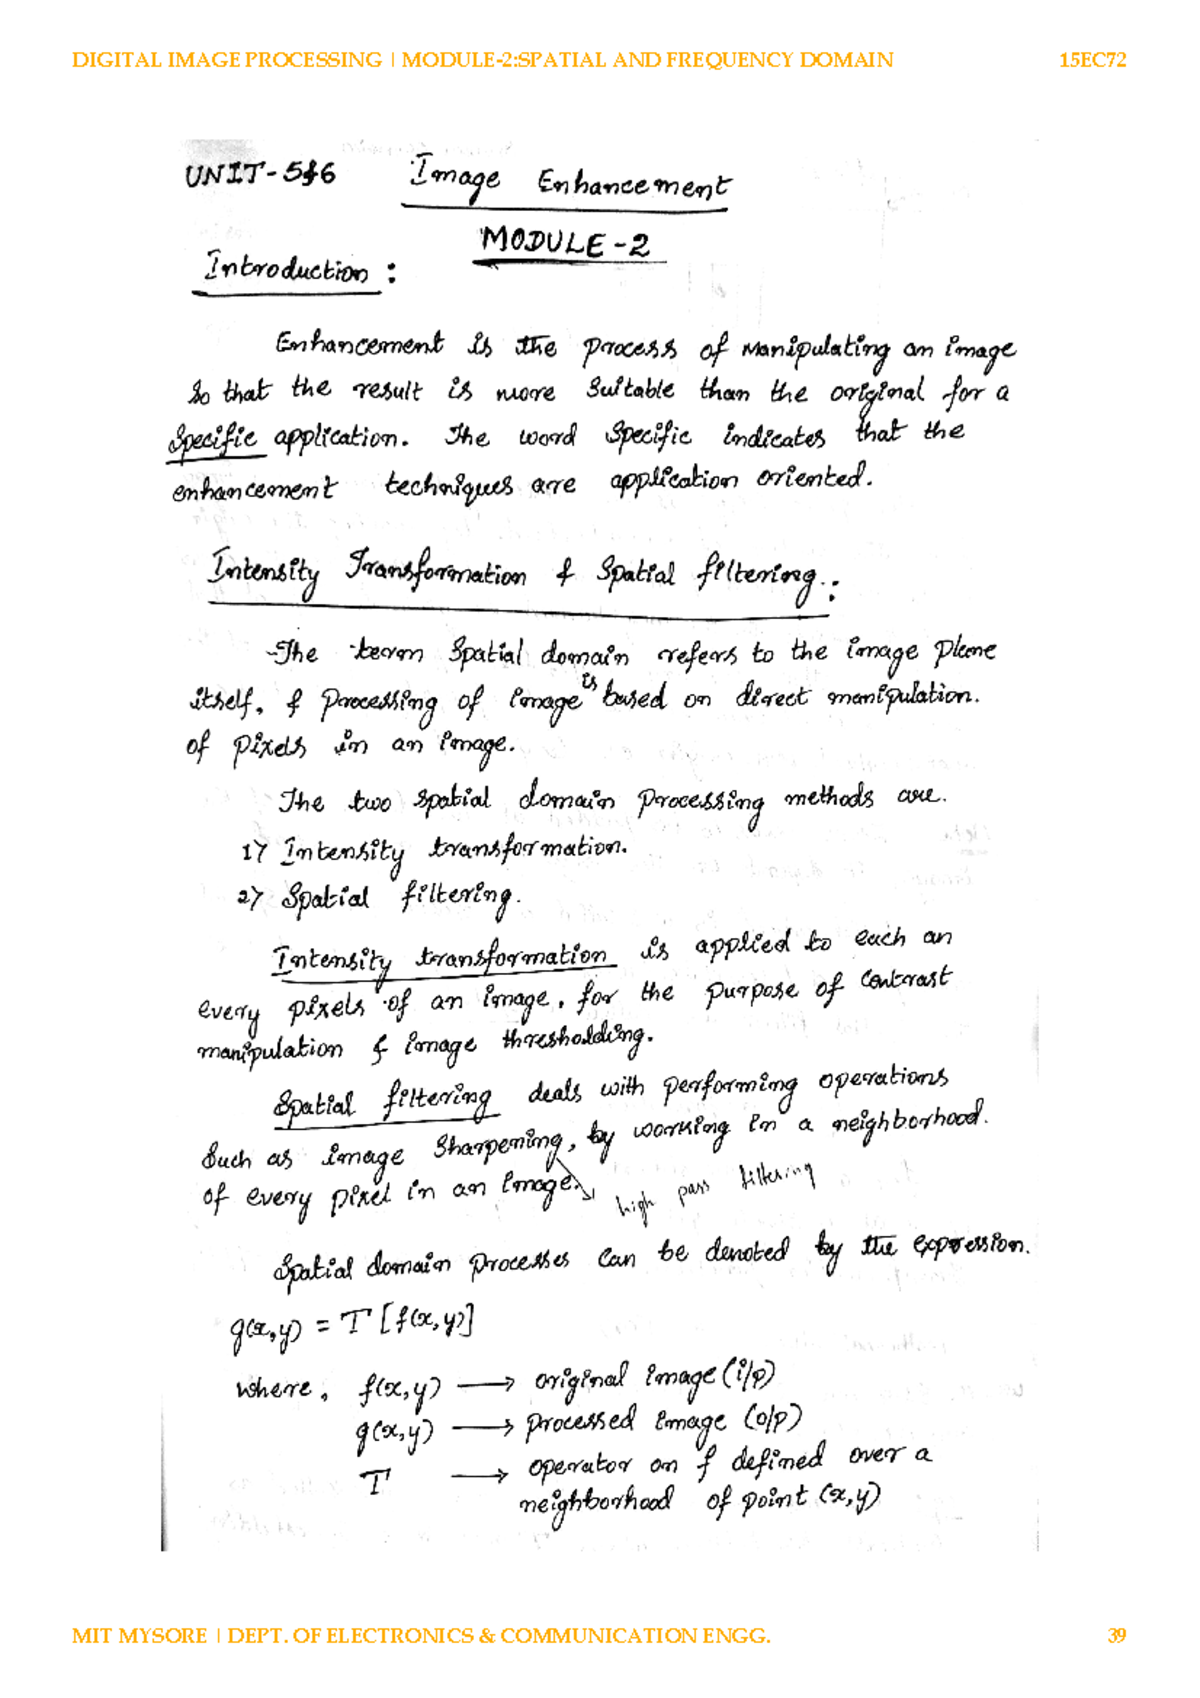 DIGITAL IMAGE PROCESSING | MODULE-2:SPATIAL AND FREQUENCY DOMAIN 15EC72
UNIT-5&6 Image Enhancement
MODULE-2
Introduction:
Enhancement is the process of manipulating an image
so that the result is more suitable than the original for a
specific application. The word specific indicates that the
enhancement techniques are application oriented.
Intensity Transformation & Spatial filtering:
The term spatial domain refers to the image plane
itself, & processing of image is based on direct manipulation.
of pixels in an image.
The two spatial domain processing methods are.
1) Intensity transformation.
2) Spatial filtering.
Intensity transformation is applied to each an
every pixels of an image, for the purpose of contrast
manipulation & image thresholding.
Spatial filtering deals with performing operations
such as image sharpening, by working in a neighborhood.
of every pixel in an image. high pass filtering
Spatial domain processes can be denoted by the expression.
g(x,y) = T[f(x,y)]
where, f(x,y) → original image (i/p)
g(x,y) → processed image (o/p)
T → operator on f defined over a
neighborhood of point (x,y)
MIT MYSORE | DEPT. OF ELECTRONICS & COMMUNICATION ENGG. 39